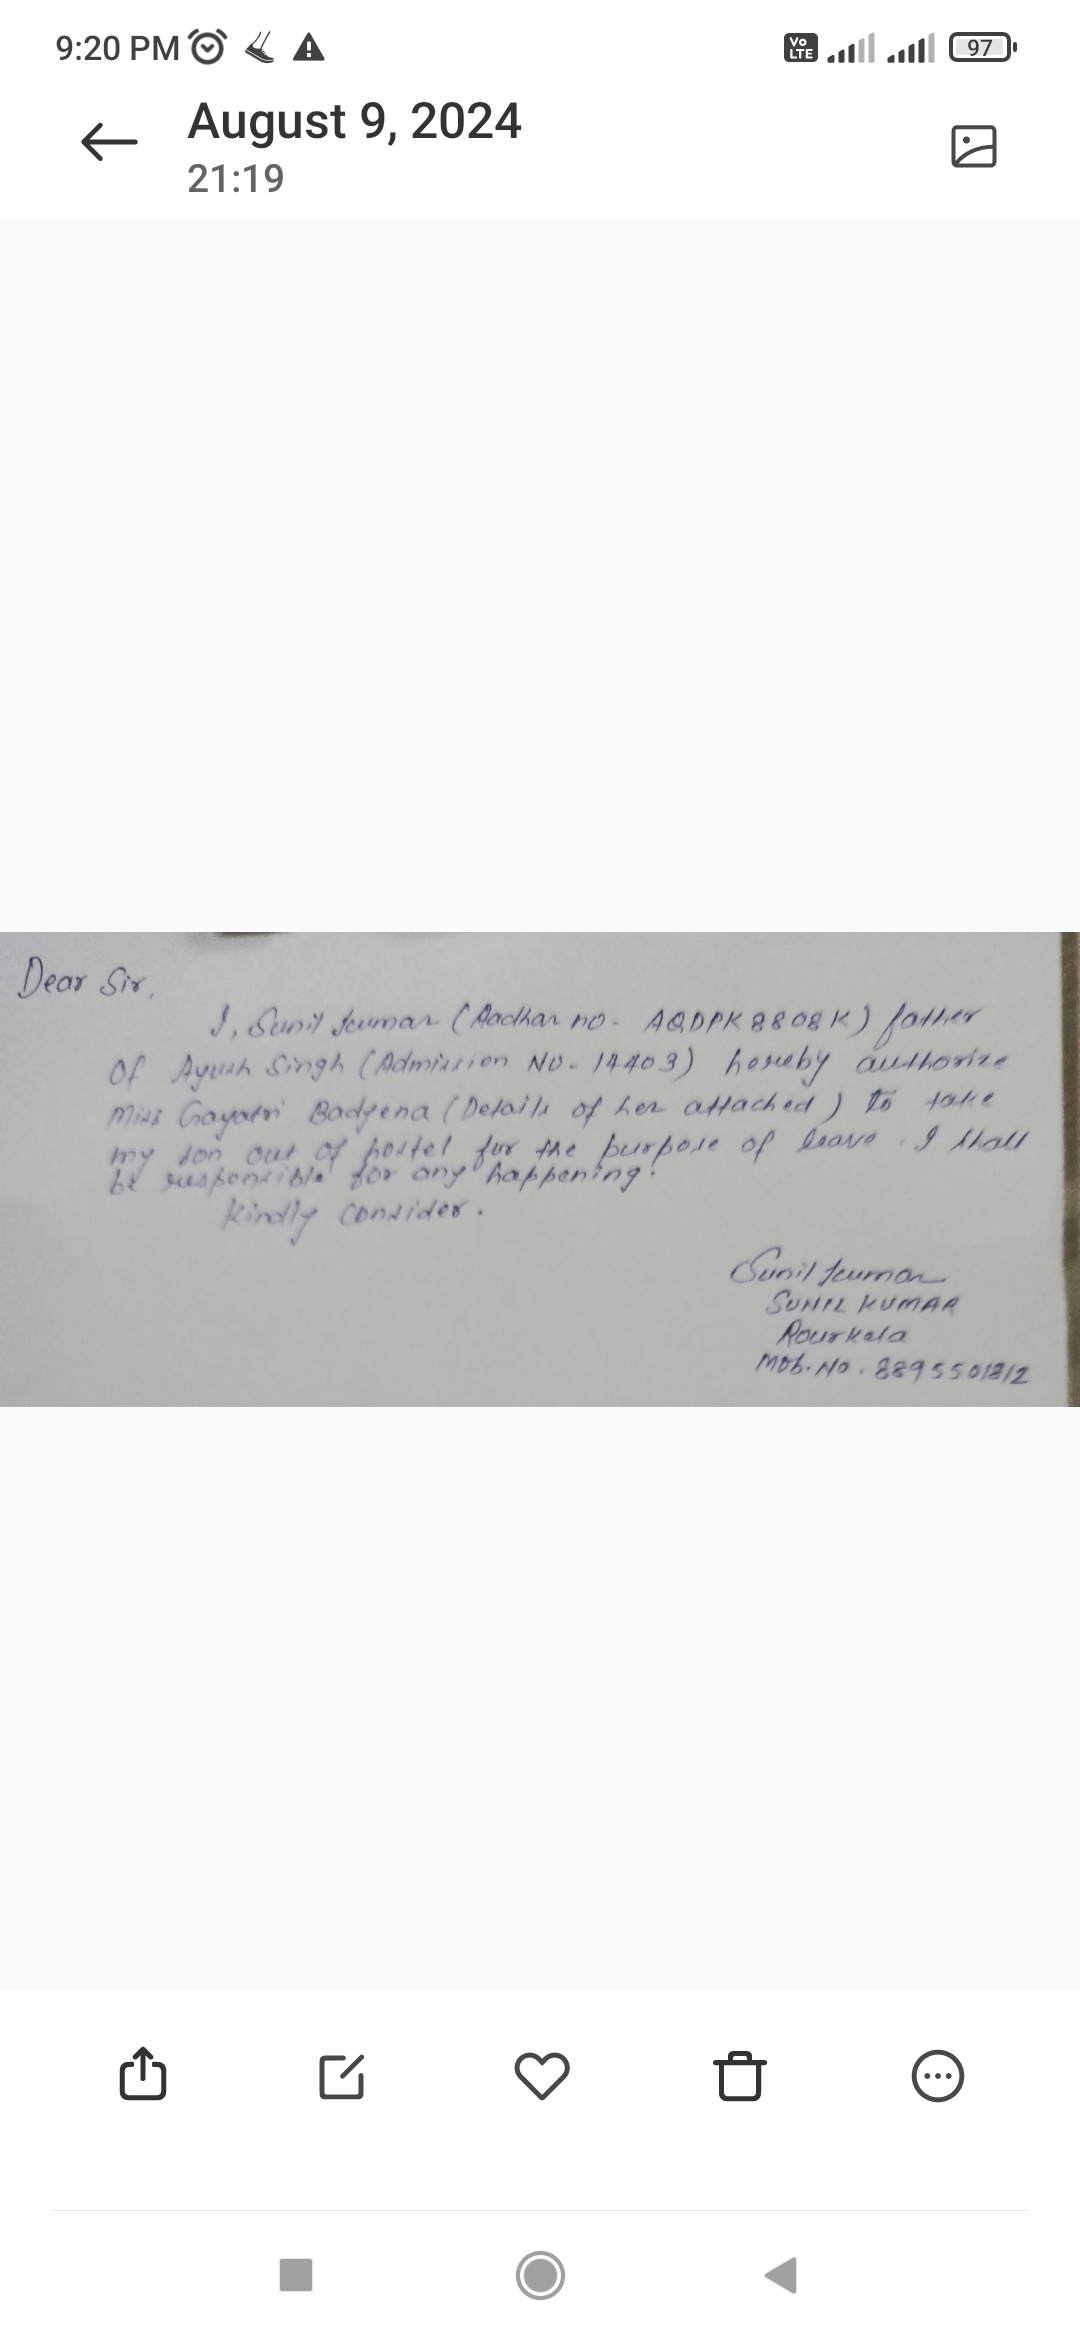 9:20 PM
Vo LTE
97
August 9, 2024
21:19
Dear Sir,
I, Sunil Kumar (Aadhar no- AQDPK8808K) father
of Ayush Singh (Admission No- 14403) hereby authorize
Miss Gayatri Badjena (Details of her attached) to take
my son out of hostel for the purpose of leave. I shall
be responsible for any happening.
Kindly Consider.
Sunil Kumar
SUNIL KUMAR
Rourkela
Mob. No. 8895501812